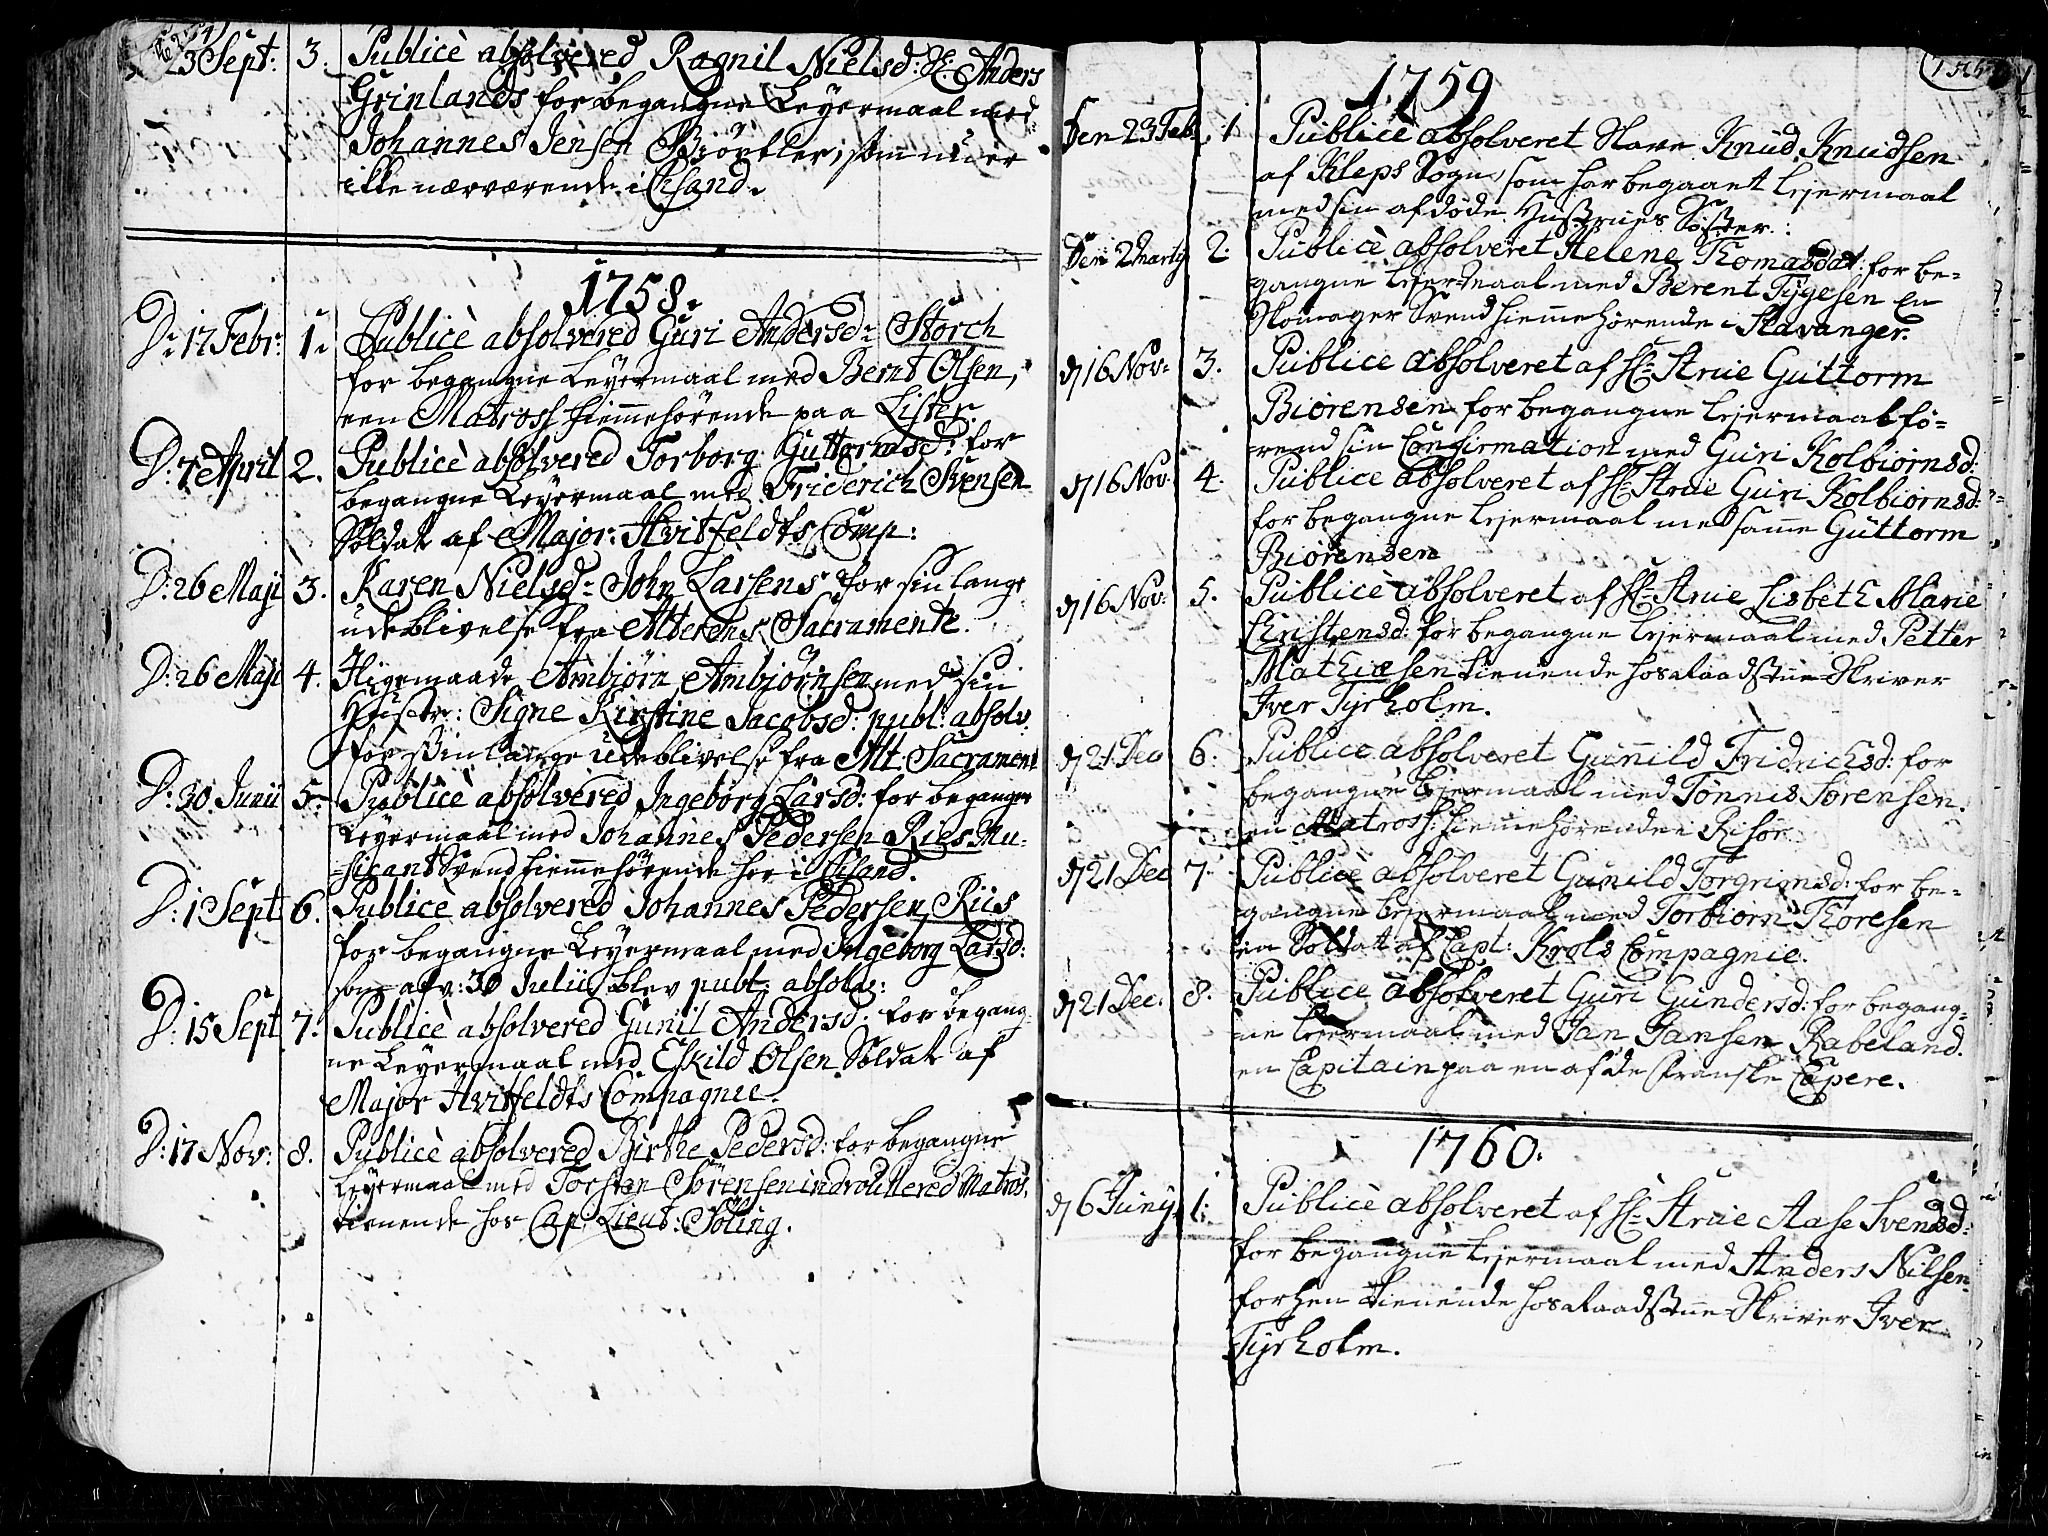 23 Sept: 3. Publicè absolvered Ragnil Nielsd: Anders
Grinlands for begangne Leyermaal med
Johannes Jensen som nu er
ikke nærværende i Chsand.
1758.
D: 17 Febr: 1. Publicè absolvered Guri Andersd: Storch
for begangne Leyermaal med Bernt Olsen,
een Matross hiemmehörende paa Lister.
D: 7 April 2. Publicè absolvered Torborg Guttormsd: for
begangne Leyermaal med Friderich Svensen
Soldat af Major: Hvitfeldts Comp:
D: 26 Maji 3. Karen Nielsd: John Larsens for sin lange
udeblivelse fra Alterens Sacramente.
D: 26 Maji 4. Ligemaade Ambiörn Ambiörnsen med sin
Hustr: Signe Kirstine Jacobsd: publ: absolv:
for sin lange udeblivelse fra Alt: Sacrament
D: 30 Junii 5. Publicè absolvered Ingeborg Larsd: for begangne
Leyermaal med Johannes Pedersen Ries Mu-
sicant Svend hiemmehörende her i Chsand.
D: 1 Sept 6. Publicè absolvered Johannes Pedersen Riis
for begangne Leyermaal med Ingeborg Larsd:
som afv: 30 Julii blev publ: absolv:
D: 15 Sept 7. Publicè absolvered Gunil Andersd: for begang-
ne Leyermaal med Eskild Olsen Soldat af
Major Hvitfeldts Compagnie.
D: 17 Nov: 8. Publicè absolvered Birthe Pedersd: for begangne
Leyermaal med Torsten Sörensen indroullered Matros,
tienende hos Cap: Lieut: Söling.
1759
Den 23 Feb: 1 Publicè absolveret Slave Knud Knudsen
af Kleps Sogn, som har begaaet Lejermaal
med sin afdøde Hustrues Söster.
Den 2 Martij 2. Publicè absolveret Helene Thomasdat: for be-
gangne Lejermaal med Berent Tygesen En
Skomager Svend hiemmehörende i Stavanger.
d 16 Nov: 3. Publice absolveret af Hr: Strue Guttorm
Biørensen for begangne Lejermaal fö-
rend sin Confirmation med Guri Kolbiørnsd:
d 16 Nov: 4. Publice absolveret af Hr: Strue Guri Kolbiørnsd:
for begangne Lejermaal med samme Guttorm
Biørensen
d 16 Nov: 5. Publicè absolveret af Hr: Strue Lisbeth Marie
Christensd: for begangne Lejermaal med Petter
Mathiesen tienende hos Raadstue-Skriver
Iver Tyrholm.
d 21 Dec 6. Publice absolveret Gunnild Fridrichsd: for
begangne Lejermaal med Tønnis Sørensen.
en Matross: hiemmehörende i Risör
d 21 Dec 7. Publicè absolveret Gunild Torgrimsd: for be-
gangne Lejermaal med Torbiørn Thoresen
en Soldatt af Capt: Krols Compagnie.
d 21 Dec: 8. Publicè absolveret Guri Gundersd: for begang-
ne Lejermaal med Jan Jansen Rabeland.
en Capitain paa en af de franske Capere.
1760.
d 6 Junij 1. Publicè absolveret af Hr: Strue Aase Svendsd:
for begangne Lejermaal med Anders Nilsen
forhen tienende hos Raadstue-Skriver Iver
Tyrholm.